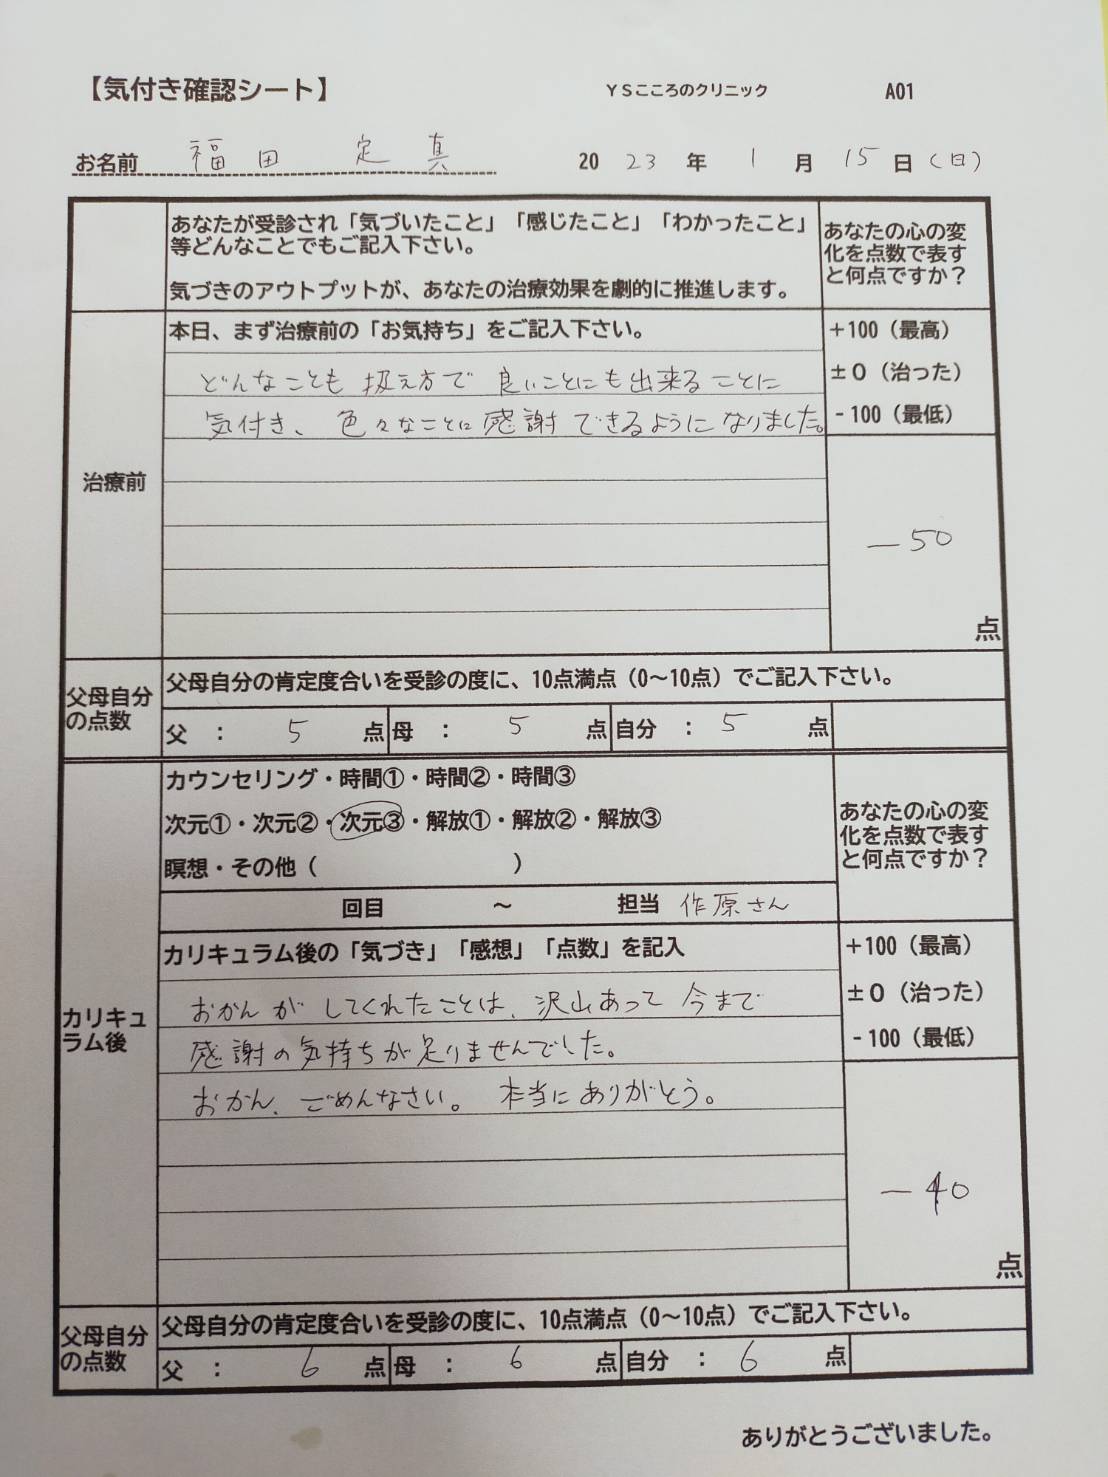 【気付き確認シート】 YSこころのクリニック A01
お名前 福田 定真 2023年1月15日(日)
あなたが受診され「気づいたこと」「感じたこと」「わかったこと」
等どんなことでもご記入下さい。
気づきのアウトプットが、あなたの治療効果を劇的に推進します。
あなたの心の変
化を点数で表す
と何点ですか?
治療前
本日、まず治療前の「お気持ち」をご記入下さい。
どんなことも 扱え方で 良いことにも出来ることに
気付き、色々なことに感謝できるようになりました。
+100(最高)
±0(治った)
-100(最低)
-50
点
父母自分
の点数
父母自分の肯定度合いを受診の度に、10点満点(0〜10点)でご記入下さい。
父 : 5 点 母 : 5 点 自分 : 5 点
カリキュ
ラム後
カウンセリング・時間①・時間②・時間③
次元①・次元②・次元③・解放①・解放②・解放③
瞑想・その他( )
回目 〜 担当 作原さん
あなたの心の変
化を点数で表す
と何点ですか?
カリキュラム後の「気づき」「感想」「点数」を記入
おかんが してくれたことは、沢山あって 今まで
感謝の気持ちが足りませんでした。
おかん、ごめんなさい。 本当にありがとう。
+100(最高)
±0(治った)
-100(最低)
-40
点
父母自分
の点数
父母自分の肯定度合いを受診の度に、10点満点(0〜10点)でご記入下さい。
父 : 6 点 母 : 6 点 自分 : 6 点
ありがとうございました。